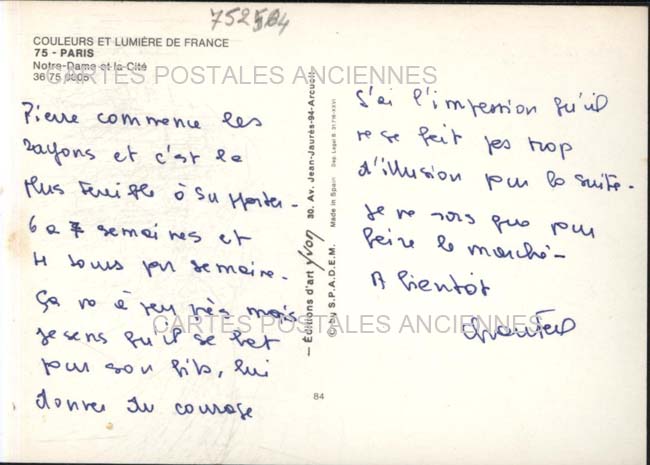 752504
COULEURS ET LUMIÈRE DE FRANCE
75 - PARIS
Notre-Dame et la Cité
36 75 0805
CARTES POSTALES ANCIENNES
Pierre commence les
rayons et c'est le
plus terrible à supporter.
6 à 7 semaines et
4 jours par semaine.
Ça va à peu près mais
je sens qu'il se bat
pour son fils, lui
donner du courage
— Éditions d'art yvon 30, Av. Jean-Jaurès-94-Arcueil
© by S.P.A.D.E.M. Made in Spain Dep. Legal B. 31718-XXVI
84
J'ai l'impression qu'il
ne se fait pas trop
d'illusion pour la suite.
Je ne sors que pour
faire le marché -
A bientôt
CARTES POSTALES ANCIENNES